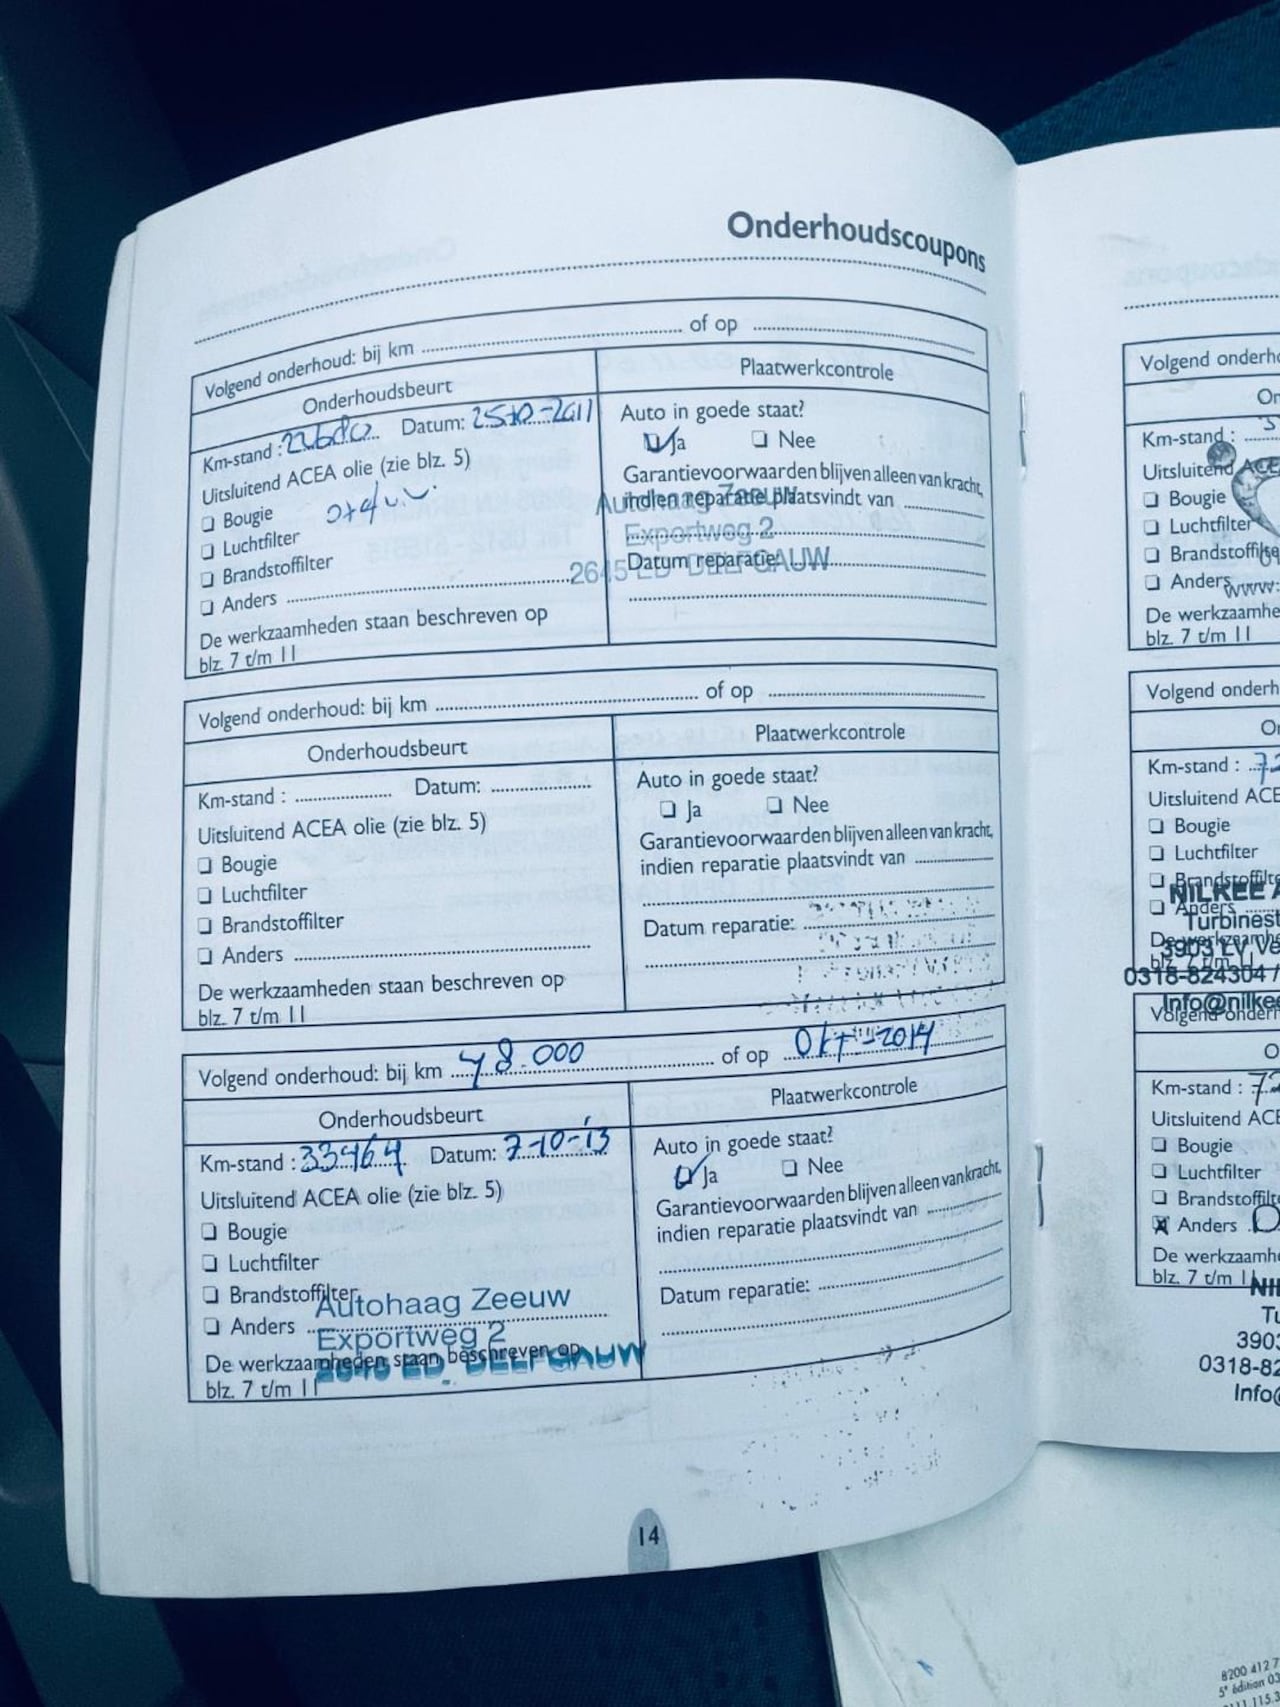 Onderhoudscoupons
Volgend onderhoud: bij km ........ of op ........
Onderhoudsbeurt
Plaatwerkcontrole
Km-stand : Datum: 25-10-2011
Auto in goede staat?
Ja ❏ Nee
Uitsluitend ACEA olie (zie blz. 5)
Garantievoorwaarden blijven alleen van kracht,
indien reparatie plaatsvindt van ........
❏ Bougie
❏ Luchtfilter
❏ Brandstoffilter
❏ Anders ........
Autohaag Zeeuw
Exportweg 2
2645 ED DELFGAUW
Datum reparatie: ........
De werkzaamheden staan beschreven op
blz. 7 t/m 11
Volgend onderhoud: bij km ........ of op ........
Onderhoudsbeurt
Plaatwerkcontrole
Km-stand : ........ Datum: ........
Auto in goede staat?
❏ Ja ❏ Nee
Uitsluitend ACEA olie (zie blz. 5)
Garantievoorwaarden blijven alleen van kracht,
indien reparatie plaatsvindt van ........
❏ Bougie
❏ Luchtfilter
❏ Brandstoffilter
❏ Anders ........
Datum reparatie: ........
De werkzaamheden staan beschreven op
blz. 7 t/m 11
Volgend onderhoud: bij km 48.000 of op okt-2014
Onderhoudsbeurt
Plaatwerkcontrole
Km-stand : 33464 Datum: 7-10-13
Auto in goede staat?
Ja ❏ Nee
Uitsluitend ACEA olie (zie blz. 5)
Garantievoorwaarden blijven alleen van kracht,
indien reparatie plaatsvindt van ........
❏ Bougie
❏ Luchtfilter
❏ Brandstoffilter
❏ Anders ........
Datum reparatie: ........
Autohaag Zeeuw
Exportweg 2
2645 ED DELFGAUW
De werkzaamheden staan beschreven op
blz. 7 t/m 11
14
Volgend onderho
On
Km-stand :
Uitsluitend ACE
❏ Bougie
❏ Luchtfilter
❏ Brandstoffilte
❏ Anders
www.
De werkzaamhe
blz. 7 t/m 11
Volgend onderh
O
Km-stand : 72
Uitsluitend ACE
❏ Bougie
❏ Luchtfilter
❏ Brandstoffilte
❏ Anders
NILKEE A
Turbinest
3903 LV Ve
0318-824304 /
Info@nilkee
De werkzaamhe
blz. 7 t/m 11
Volgend onderh
O
Km-stand : 72
Uitsluitend ACE
❏ Bougie
❏ Luchtfilter
❏ Brandstoffilte
Anders
De werkzaamhe
blz. 7 t/m 11
NIL
Tu
3903
0318-82
Info@
8200 412 7
5e édition 03